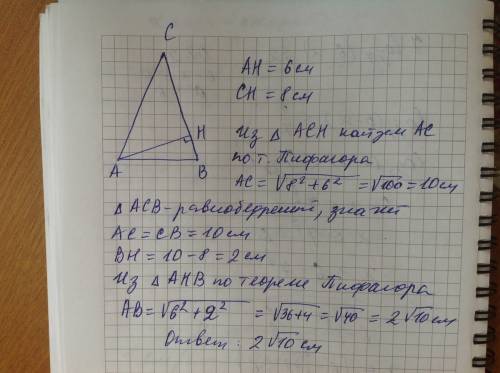 C
AH = 6 см
CH = 8 см
H
A
B
Из △ ACH найдем AC
по т. Пифагора
AC = √8² + 6² = √100 = 10 см
△ ACB - равнобедренный, значит
AC = CB = 10 см
BH = 10 - 8 = 2 см
Из △ AHB по теореме Пифагора
AB = √6² + 2² = √36+4 = √40 = 2√10 см
Ответ: 2√10 см